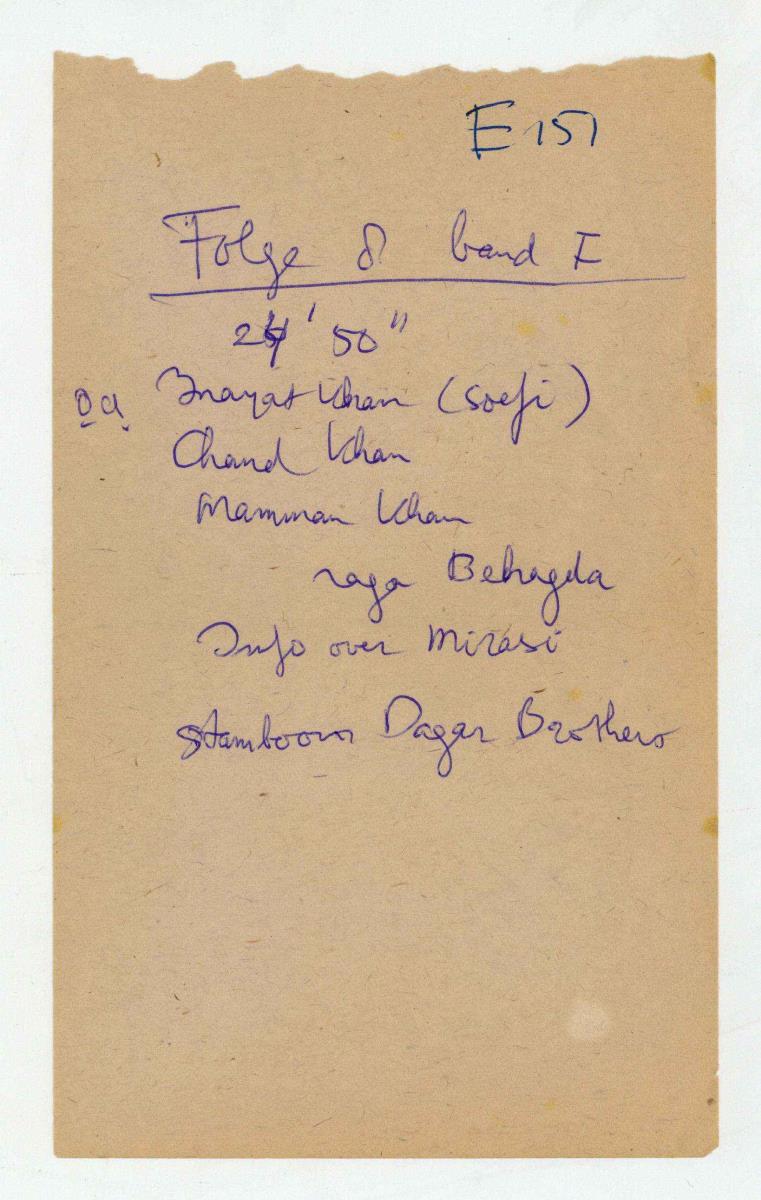 E 151
Folge 8 band I
24' 50"
o.a. Inayat Khan (Soefi)
Chand Khan
Mamman Khan
raga Behagda
Info over Mirasi
stamboom Dagar Brothers